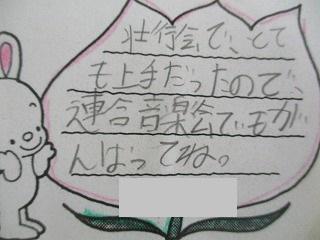 壮行会で、とて
も上手だったので、
連合音楽会でもが
んばってね。